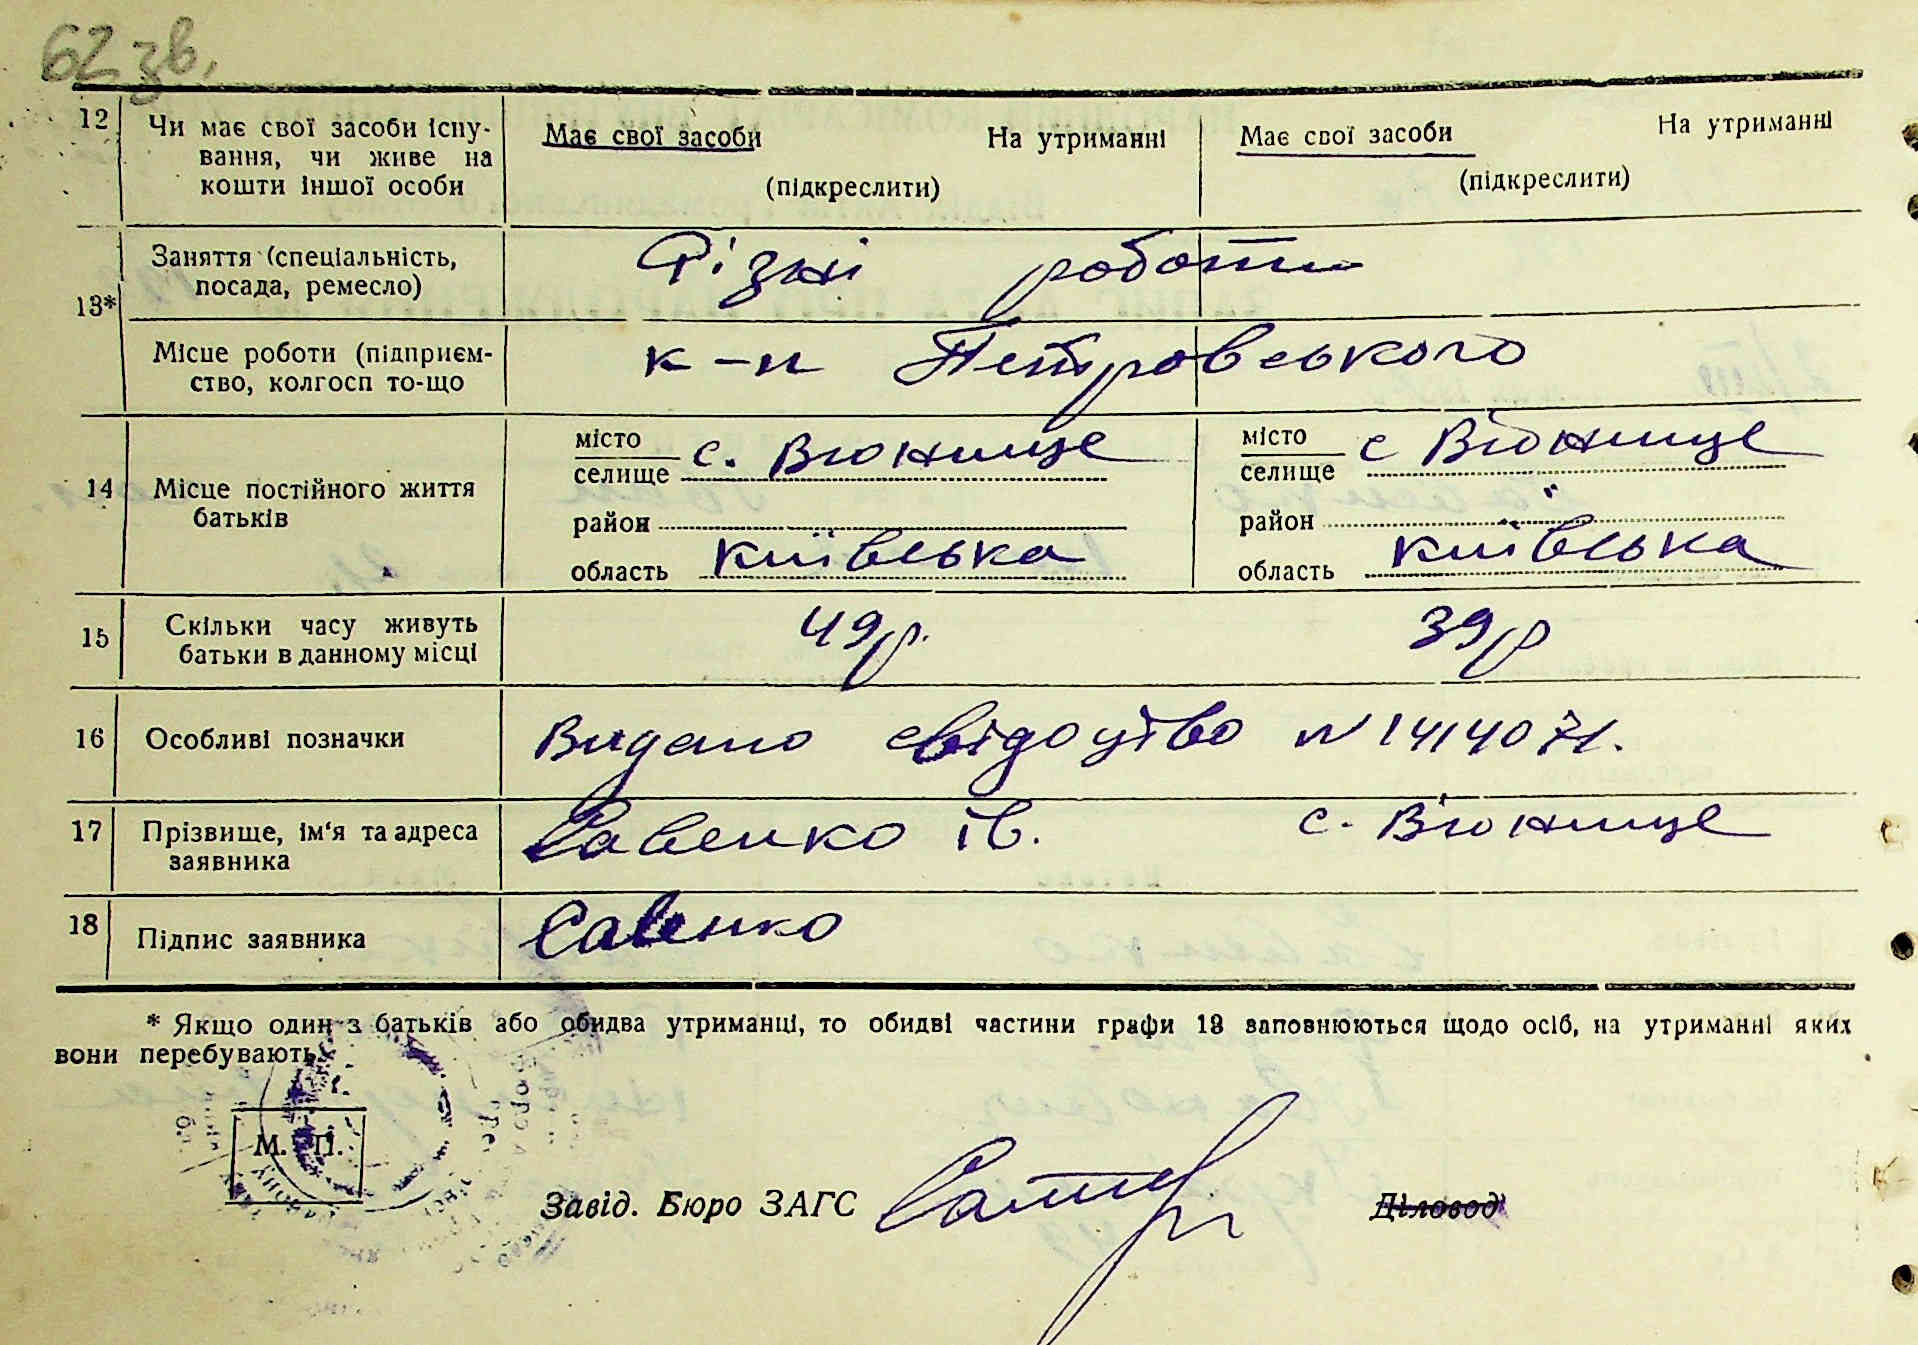 62 зв.
12 Чи має свої засоби існу-
вання, чи живе на
кошти іншої особи
Має свої засоби На утриманні
(підкреслити)
Має свої засоби На утриманні
(підкреслити)
13* Заняття (спеціальність,
посада, ремесло)
Різні роботи
Місце роботи (підприєм-
ство, колгосп то-що
к-п Петровського
14 Місце постійного життя
батьків
місто
селище с. Вюнище
район
область Київська
місто
селище с Вюнище
район
область Київська
15 Скільки часу живуть
батьки в данному місці
49р. 39р
16 Особливі позначки
Видано свідоцтво N 1414071.
17 Прізвище, ім'я та адреса
заявника
Савенко Ів. с. Вюнище
18 Підпис заявника
Савенко
* Якщо один з батьків або обидва утриманці, то обидві частини графи 13 заповнюються щодо осіб, на утриманні яких
вони перебувають.
М. П.
Завід. Бюро ЗАГС Діловод